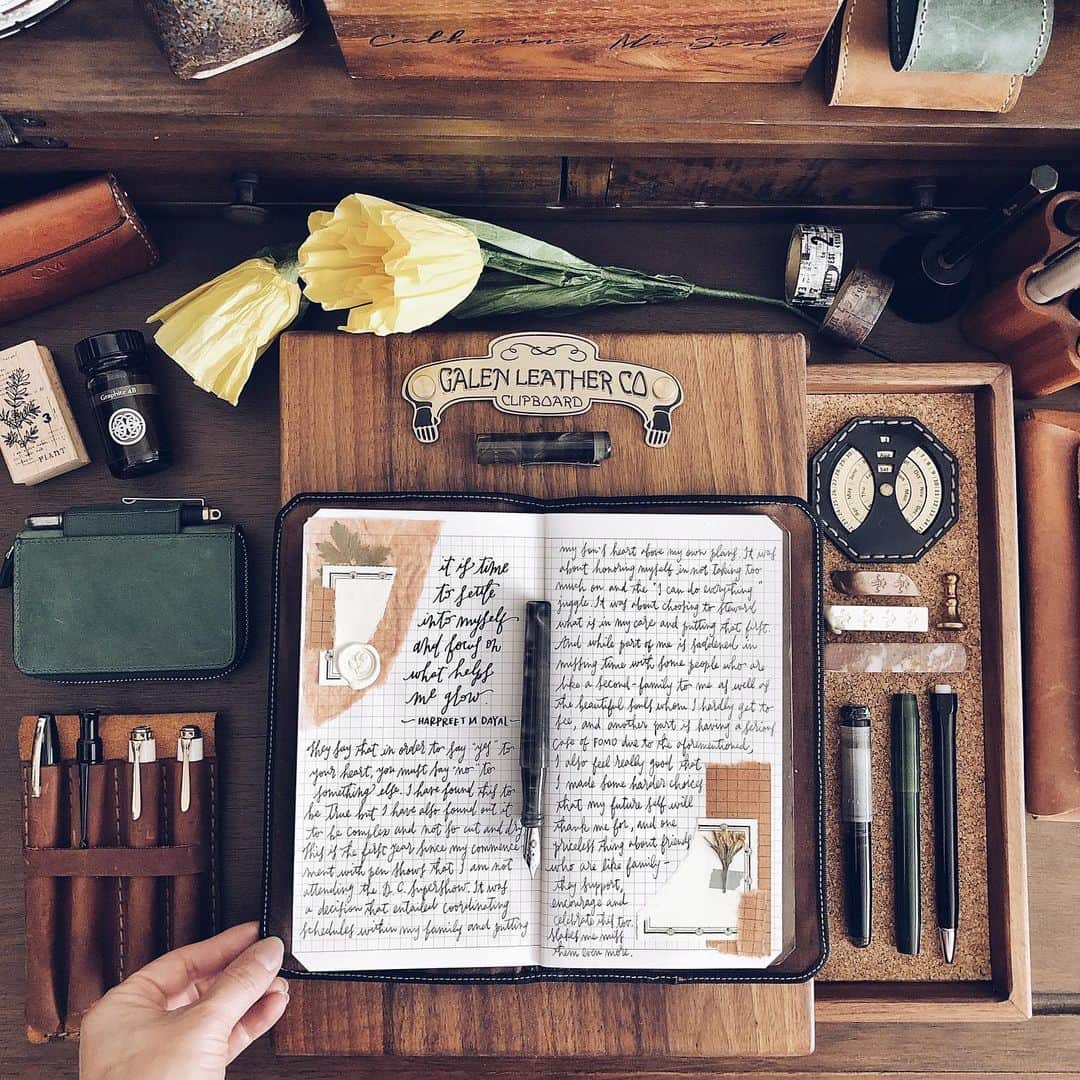 Catharine Mi Sook
CM
Graphite 4B
3
PLANT
GALEN LEATHER CO
CLIPBOARD
it is time
to settle
into myself
and focus on
what helps
me grow.
- HARPREET M DAYAL -
They say that in order to say "yes" to
your heart, you must say "no" to
something else. I have found this to
be true but I have also found out it
to be complex and not so cut and dry.
This is the first year since my commence
ment with pen shows that I am not
attending the D.C. Supershow. It was
a decision that entailed coordinating
schedules within my family and putting
my son's heart above my own plans. It was
about honoring myself in not taking too
much on and the "I can do everything"
juggle. It was about choosing to steward
what is in my care and putting that first.
And while part of me is saddened in
missing time with some people who are
like a second-family to me as well as
the beautiful souls whom I hardly get to
see, and another part is having a serious
case of FOMO due to the aforementioned,
I also feel really good that
I made some harder choices
that my future self will
thank me for, and one
priceless thing about friends
who are like family -
they support,
encourage and
celebrate this too.
Makes me miss
them even more.